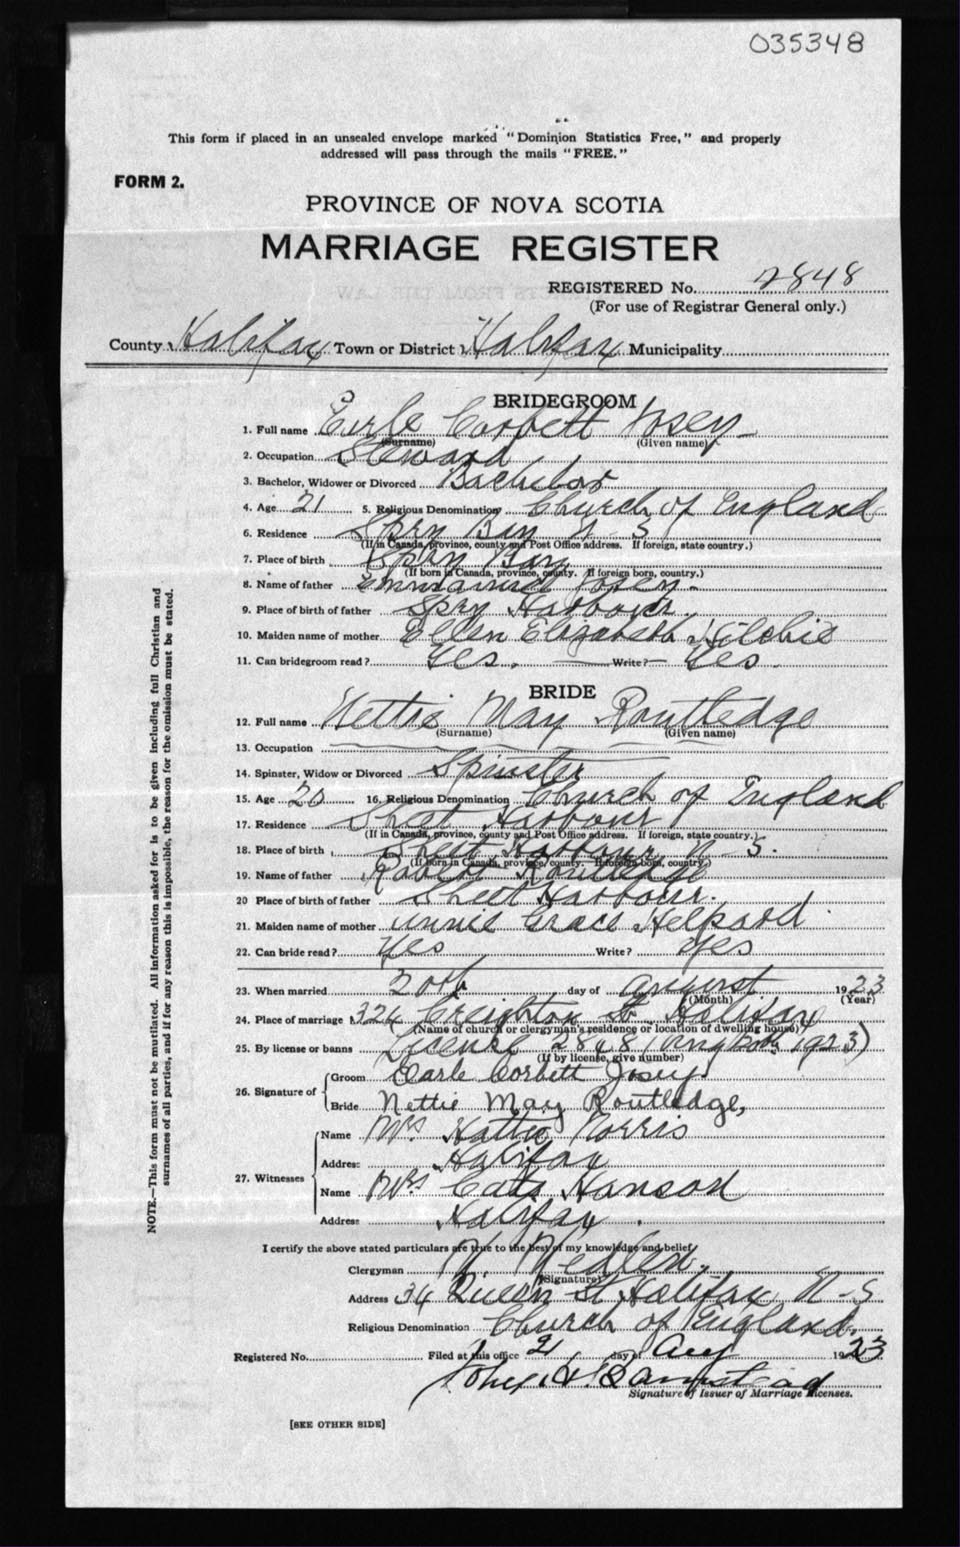 035348
This form if placed in an unsealed envelope marked "Dominion Statistics Free," and properly
addressed will pass through the mails "FREE."
FORM 2.
PROVINCE OF NOVA SCOTIA
MARRIAGE REGISTER
REGISTERED No. 2848
(For use of Registrar General only.)
County Halifax Town or District Halifax Municipality
BRIDEGROOM
1. Full name Earle Corbett Josey
(Surname) (Given name)
2. Occupation Steward
3. Bachelor, Widower or Divorced Bachelor
4. Age 21 5. Religious Denomination Church of England
6. Residence Spry Bay N-S
(If in Canada, province, county and Post Office address. If foreign, state country.)
7. Place of birth Spry Bay
(If born in Canada, province, county. If foreign born, country.)
8. Name of father Josey
9. Place of birth of father Spry Harbour
10. Maiden name of mother Ellen Elizabeth
11. Can bridegroom read? Yes. Write? Yes.
BRIDE
12. Full name Nettie May Routledge
(Surname) (Given name)
13. Occupation
14. Spinster, Widow or Divorced Spinster
15. Age 20 16. Religious Denomination Church of England
17. Residence Sheet Harbour
(If in Canada, province, county and Post Office address. If foreign, state country.)
18. Place of birth Sheet Harbour N-S.
(If born in Canada, province, county. If foreign born, country.)
19. Name of father Robert Routledge
20 Place of birth of father Sheet Harbour.
21. Maiden name of mother Annie Grace Helpard
22. Can bride read? Yes Write? Yes
23. When married 20th day of August 1923
(Month) (Year)
24. Place of marriage 324 Creighton St Halifax
(Name of church or clergyman's residence or location of dwelling house)
25. By license or banns License 2848 1923)
(If by license, give number)
26. Signature of Groom Earle Corbett Josey
Bride Nettie May Routledge,
27. Witnesses Name Mrs Norris
Address Halifax
Name Mrs Hanson
Address Halifax.
I certify the above stated particulars are true to the best of my knowledge and belief
Clergyman
(Signature)
Address 34 Queen St Halifax N-S
Religious Denomination Church of England.
Registered No. Filed at this office 21 day of Aug 1923
John H. Barnstead
Signature of Issuer of Marriage Licenses.
[SEE OTHER SIDE]
NOTE.—This form must not be mutilated. All information asked for is to be given including full Christian and
surnames of all parties, and if for any reason this is impossible, the reason for the omission must be stated.